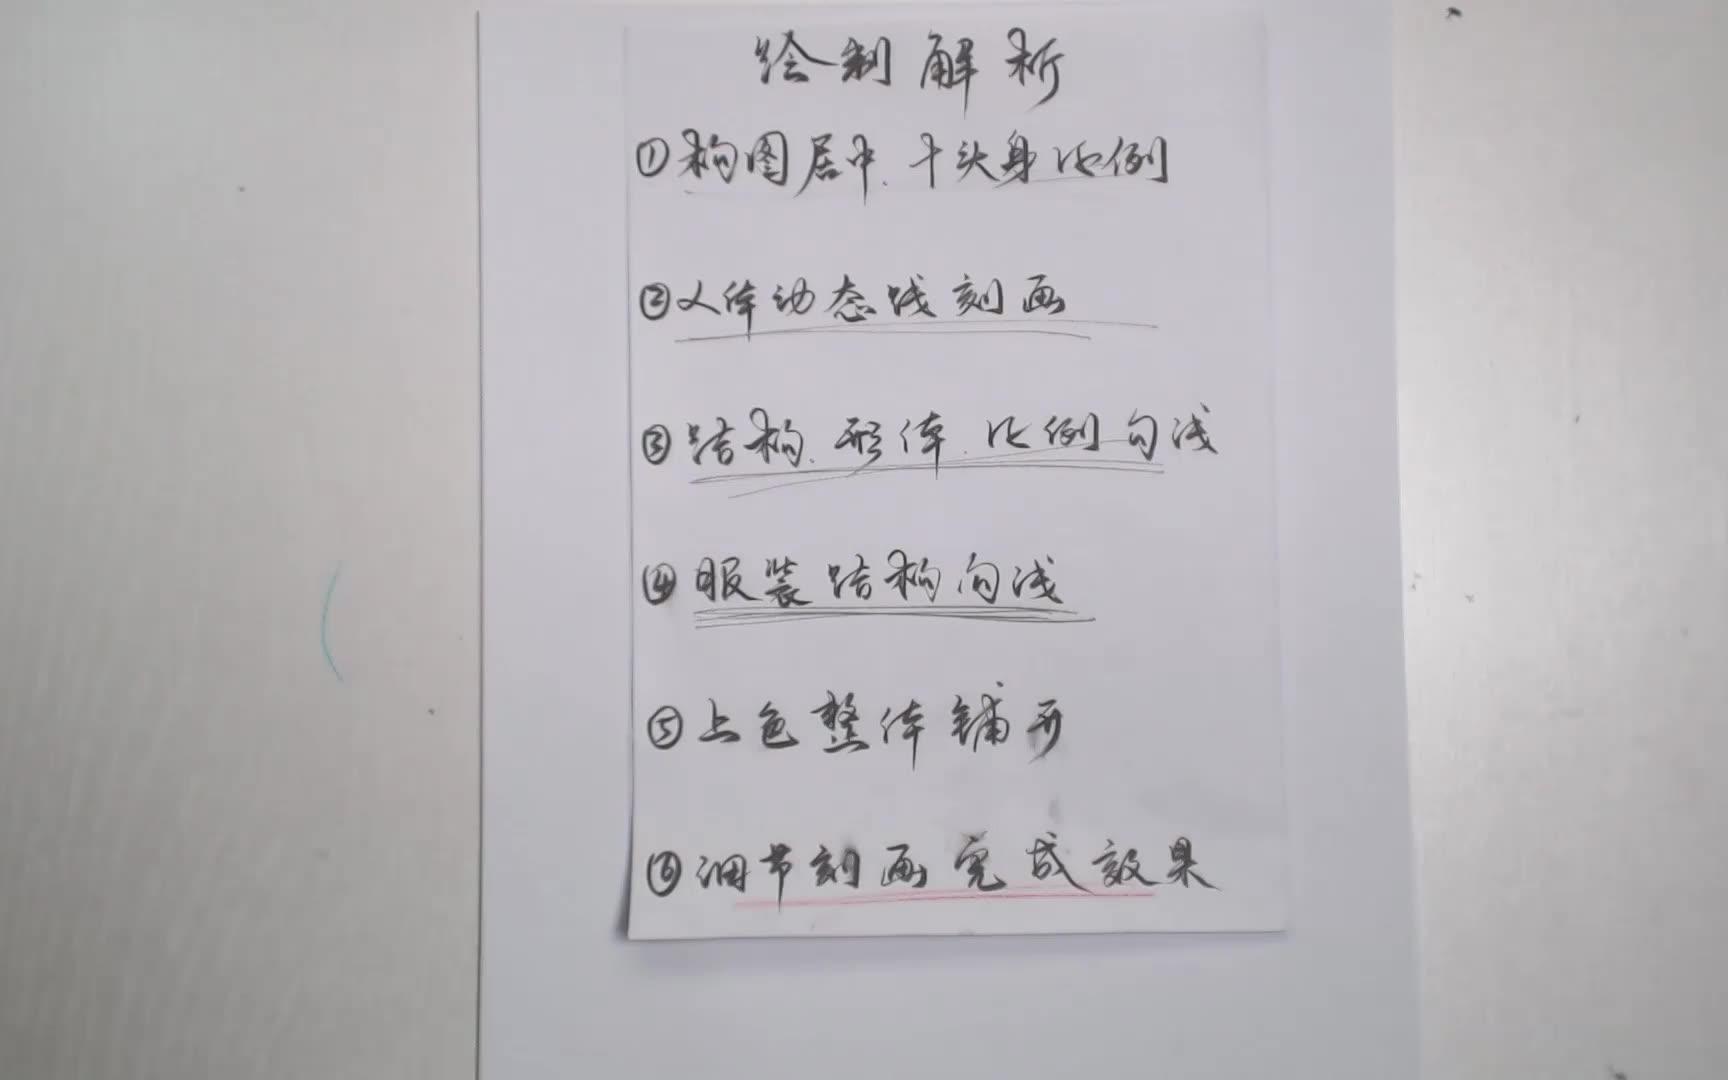 绘制解析
①构图居中.十头身比例
②人体动态线刻画
③结构.形体.比例勾线
④服装结构勾线
⑤上色整体铺开
⑥细节刻画完成效果